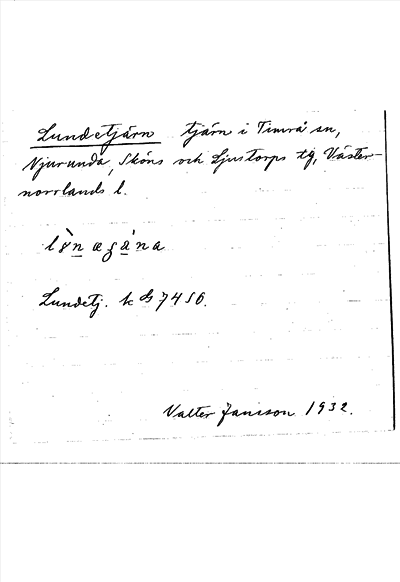 Lundetjärn tjärn i Timrå sn,
Njurunda, Sköns och Ljustorps tg, Väster-
norrlands l.
Lundetj. k
Valter Jansson 1932.